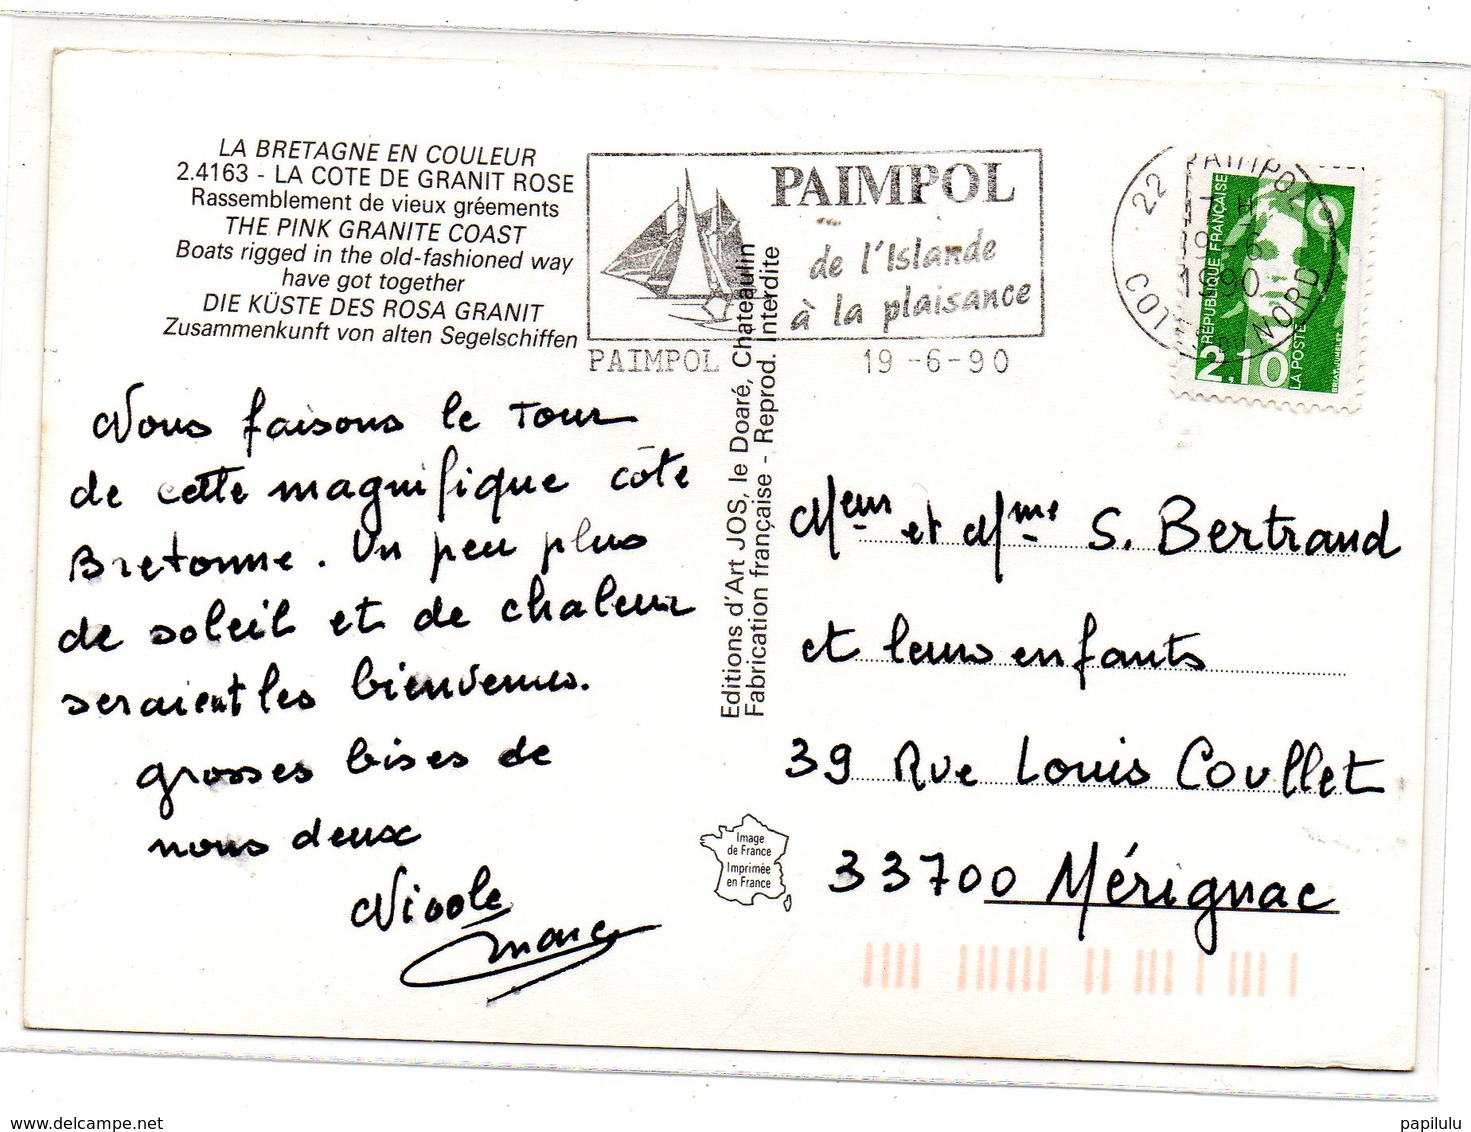 LA BRETAGNE EN COULEUR
2.4163 - LA COTE DE GRANIT ROSE
Rassemblement de vieux gréements
THE PINK GRANITE COAST
Boats rigged in the old-fashioned way
have got together
DIE KÜSTE DES ROSA GRANIT
Zusammenkunft von alten Segelschiffen
PAIMPOL
de l'Islande
à la plaisance
PAIMPOL 19-6-90
22 PAIMPOL
17 H
19-6
1990
NORD
REPUBLIQUE FRANÇAISE
2,10
LA POSTE
Nous faisons le Tour
de cette magnifique côte
Bretonne. Un peu plus
de soleil et de chaleur
seraient les bienvenus.
grosses bises de
nous deux
Nicole
Marc
Editions d'Art JOS, le Doaré, Chateaulin
Fabrication française - Reprod. Interdite
Meur et Mme S. Bertrand
et leurs enfants
39 Rue Louis Coullet
33700 Mérignac
Image
de France
Imprimée
en France
www.delcampe.net
papilulu